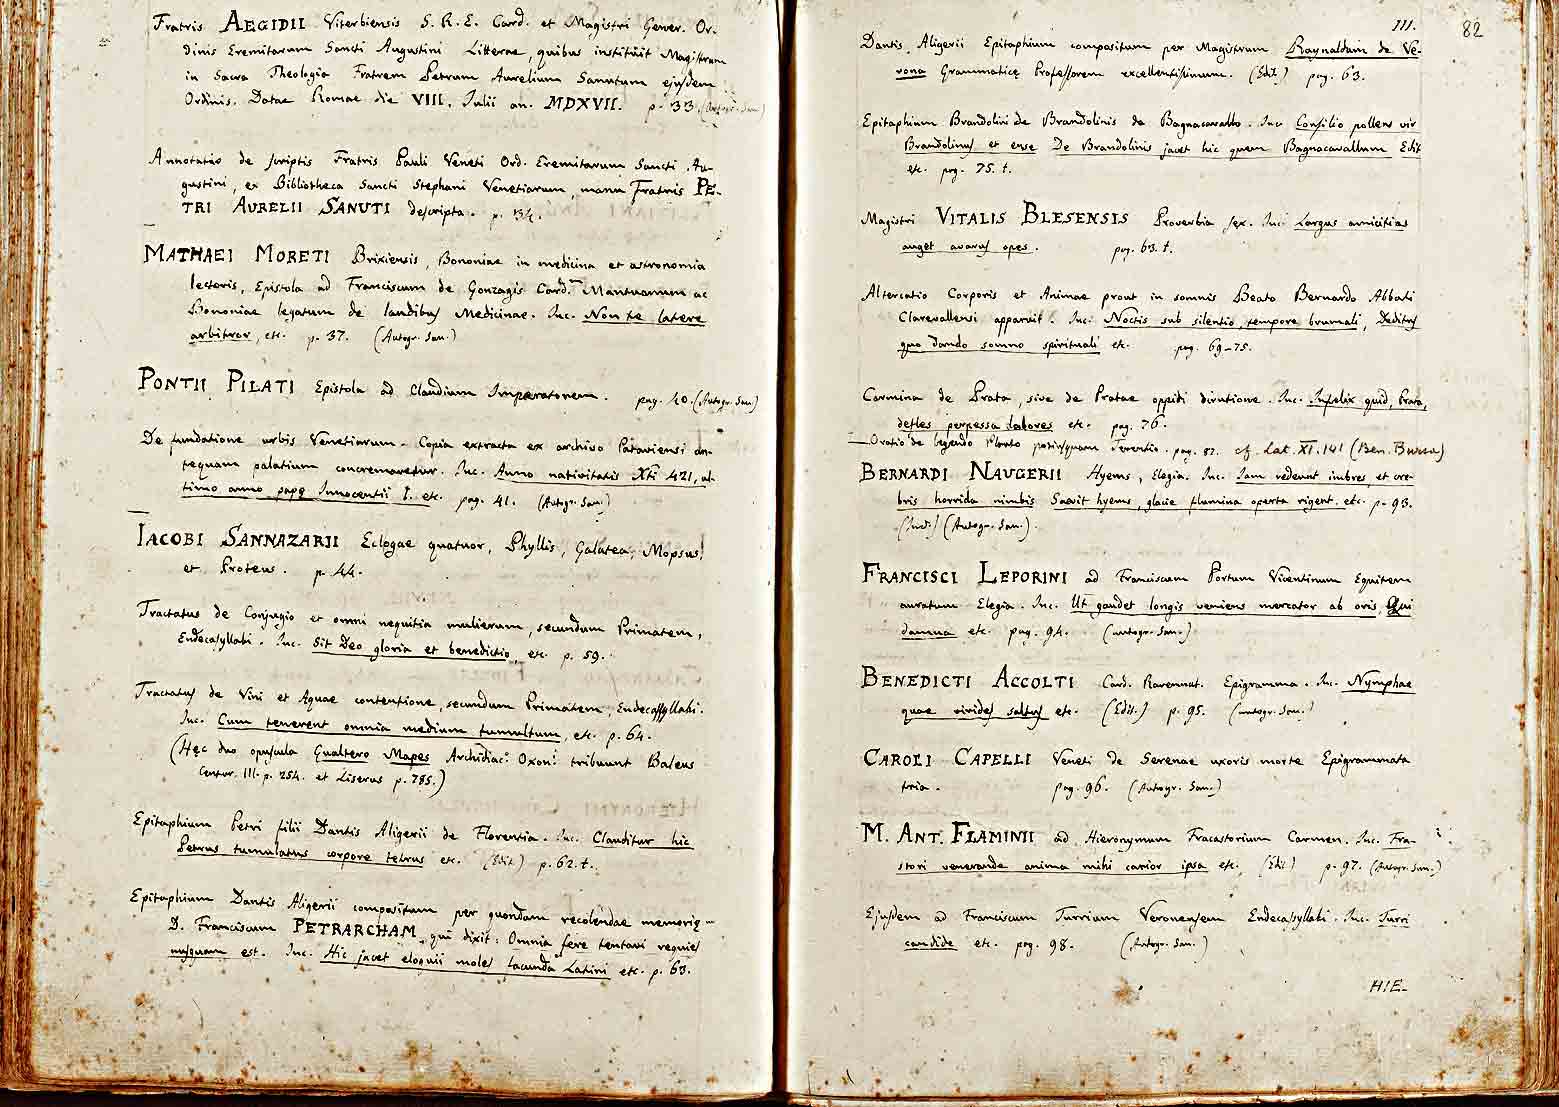 Fratris AEGIDII Viterbiensis S. R. E. Card. et Magistri Gener. Or-
dinis Eremitarum Sancti Augustini Litterae, quibus instituit Magistrum
in Sacra Theologia Fratrem Petrum Aurelium Sanutum ejusdem
Ordinis. Datae Romae die VIII. Julii an. MDXVII. p. 33. (Autogr. San.)
Annotatio de scriptis Fratris Pauli Veneti Ord. Eremitarum Sancti Au-
gustini, ex Bibliotheca Sancti Stephani Venetiarum, manu Fratris PE-
TRI AURELII SANUTI descripta. p. 134.
MATHAEI MORETI Brixiensis, Bononiae in medicina et astronomia
lectoris, Epistola ad Franciscum de Gonzagis Card. Mantuanum ac
Bononiae legatum de laudibus Medicinae. Inc. Non te latere
arbitror, etc. p. 37. (Autogr. San.)
PONTII PILATI Epistola ad Claudium Imperatorem. pag. 40. (Autogr. San.)
De fundatione urbis Venetiarum. Copia extracta ex archivo Patavensi an-
tequam palatium concremaretur. Inc. Anno nativitatis Xti 421, ul-
timo anno pape Innocentii I. etc. pag. 41. (Autogr. San.)
IACOBI SANNAZARII Eclogae quatuor, Phyllis, Galatea, Mopsus,
et Proteus. p. 44.
Tractatus de Conjugio et omni nequitia mulierum, secundum Primatem,
Endecasyllabi. Inc. Sit Deo gloria et benedictio, etc. p. 59.
Tractatus de Vini et Aquae contentione, secundum Primatem, Endecassyllabi.
Inc. Cum tenerent omnia medium tumultum, etc. p. 64.
(Hęc duo opuscula Gualtero Mapes Archidiac. Oxon. tribuunt Baleus
Centur. III. p. 254. et Liserus p. 785.)
Epitaphium Petri filii Dantis Aligerii de Florentia. Inc. Clauditur hic
Petrus tumulatus corpore tetrus etc. (Edit.) p. 62. t.
Epitaphium Dantis Aligerii compositum per quondam recolendae memorię
D. Franciscum PETRARCHAM, qui dixit: Omnia fere tentavi requies
nusquam est. Inc. Hic jacet eloquii moles facunda Latini etc. p. 63.
III. 82
Dantis Aligerii Epitaphium compositum per Magistrum Raynaldum de Ve-
rona Grammaticę Professorem excellentissimum. (Edit.) pag. 63.
Epitaphium Brandolini de Brandolinis de Bagnacavallo. Inc. Consilio pollens vir
Brandolinus et ense De Brandolinis jacet hic quem Bagnacavallum Edit
etc. pag. 75. t.
Magistri VITALIS BLESENSIS Proverbia sex. Inc. Largus amicitias
auget avarus opes. pag. 63. t.
Altercatio Corporis et Animae prout in somnis Beato Bernardo Abbati
Clarevallensi apparuit. Inc. Noctis sub silentio, tempore brumali, Deditus
quo dando somno spirituali etc. pag. 69-75.
Carmina de Prata, sive de Pratae oppidi dirutione. Inc. Infelix quid, Prata,
defles perpessa labores etc. pag. 76.
Oratio de legendo Plauto potiusquam Terentio. pag. 82. cf. Lat. XI. 141 (Ben. Bursa)
BERNARDI NAUGERII Hyems, Elegia. Inc. Jam redeunt imbres et cre-
bris horrida nimbis Saevit hyems, glacie flumina operta rigent. etc. p. 93.
(Ined.) (Autogr. San.).
FRANCISCI LEPORINI ad Franciscum Portum Vicentinum Equitem
auratum Elegia. Inc. Ut gaudet longis veniens mercator ab oris, Qui
damna etc. pag. 94. (Autogr. San.)
BENEDICTI ACCOLTI Card. Ravennat. Epigramma. In. Nymphae
quae virides saltus etc. (Edit.) p. 95. (Autogr. San.)
CAROLI CAPELLI Veneti de Serenae uxoris morte Epigrammata
tria. pag. 96. (Autogr. San.)
M. ANT. FLAMINII ad Hieronymum Fracastorium Carmen. Inc. Fra-
stori venerande anima mihi carior ipsa etc. (Edit.) p. 97. (Autogr. San.)
Ejusdem ad Franciscum Turrium Veronensem Endecassyllabi. Inc. Turri
candide etc. pag. 98. (Autogr. San.)
HIE-